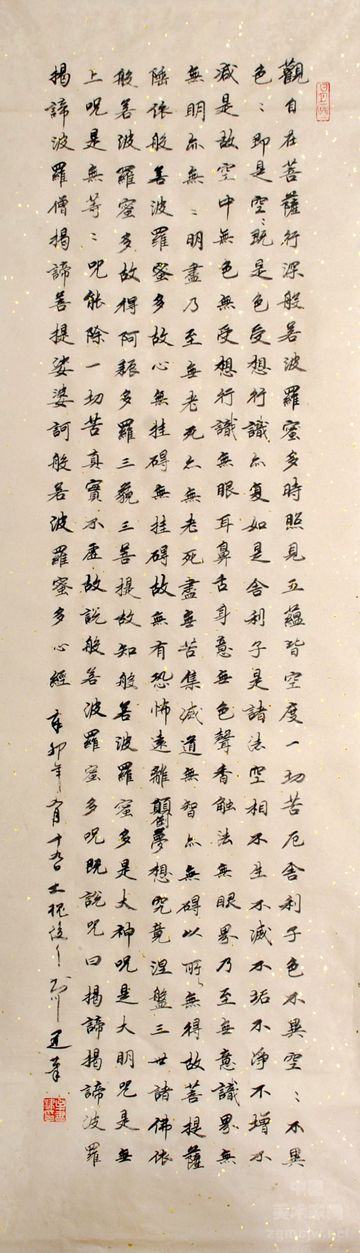 觀自在菩薩行深般若波羅蜜多時照見五蘊皆空度一切苦厄舍利子色不異空:不異
色:即是空:既是色受想行識亦复如是舍利子是諸法空相不生不滅不垢不淨不增不
减是故空中無色無受想行識無眼耳鼻舌身意無色聲香触法無眼界乃至無意識界無
無明亦無:明盡乃至無老死亦無老死盡無苦集滅道無智亦無碍以所無得故菩提薩
陲依般若波羅蜜多故心無挂碍無挂碍故無有恐怖遠離顛倒夢想究竟涅盤三世諸佛依
般若波羅蜜多故得阿耨多羅三藐三菩提故知般若波羅蜜多是大神呪是大明呪是無
上呪是無等:呪能除一切苦真實不虛故說般若波羅蜜多呪既說呪曰揭諦揭諦波羅
揭諦波羅僧揭諦菩提娑婆訶般若波羅蜜多心經 辛卯年
中國
美术家网